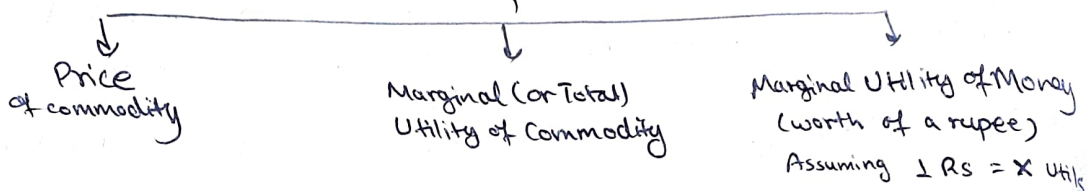 Price
of commodity
Marginal (or Total)
Utility of Commodity
Marginal Utility of Money
(worth of a rupee)
Assuming 1 Rs = X Utils